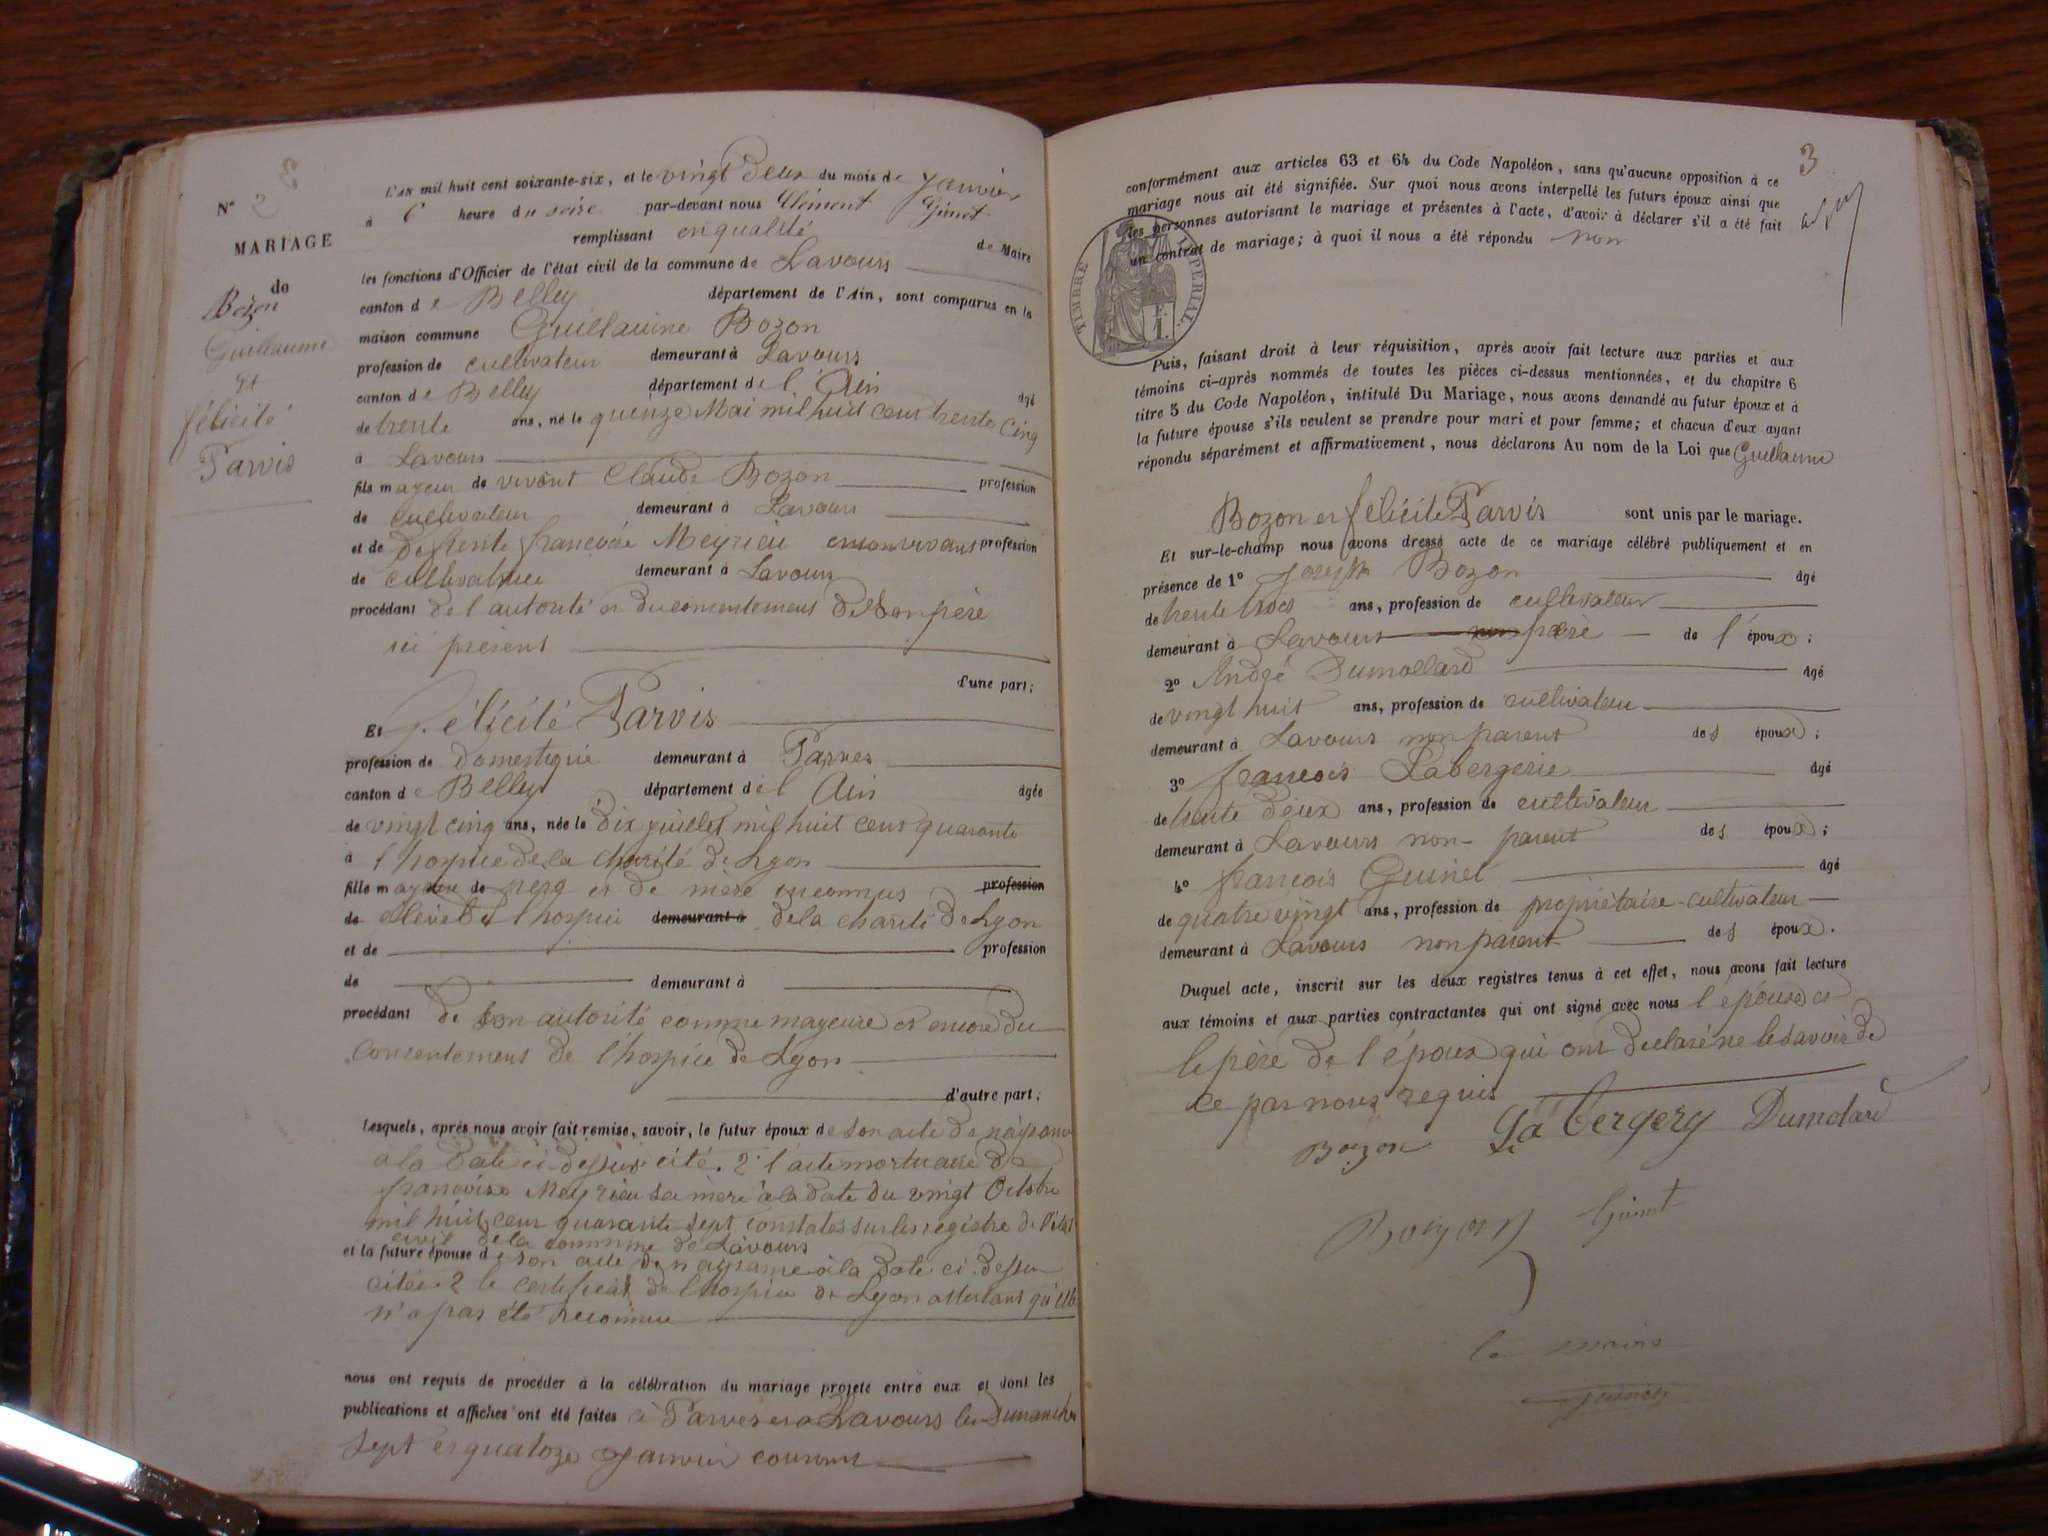 3
N° 2
MARIAGE
de
Bozon
Guillaume
et
félicité
Parvis
L'AN mil huit cent soixante-six, et le vingt Deux du mois de Janvier
à 6 heure du soire par-devant nous Clément Ginet
remplissant en qualité de Maire
les fonctions d'Officier de l'état civil de la commune de Lavours
canton de Belley département de l'Ain, sont comparus en la
maison commune Guillaume Bozon
profession de cultivateur demeurant à Lavours
canton de Belley département de l'Ain âgé
de trente ans, né le quinze Mai mil huit cent trente cinq
à Lavours
fils mayeur de vivant Claude Bozon profession
de cultivateur demeurant à Lavours
et de defunte francoise Meyrieu en son vivant profession
de cultivatrice demeurant à Lavours
procédant de l'autorité et du consentement de son père
ici présent
d'une part;
Et félicité Parvis
profession de Domestique demeurant à Parves
canton de Belley département de l'Ain âgée
de vingt cinq ans, née le Dix juillet mil huit cent quarante
à l'hospice de la charité de Lyon
fille mayeure de père et de mère inconnus profession
de élève de l'hospice demeurant à de la charité de Lyon
et de profession
de demeurant à
procédant de son autorité comme mayeure et encore du
consentement de l'hospice de Lyon
d'autre part;
Lesquels, après nous avoir fait remise, savoir, le futur époux de son acte de naissance
a la Date ci dessus cité. 2° l'acte mortuaire de
francoise Meyrieu sa mère à la date du vingt Octobre
mil huit cent quarante sept constatés sur les registre de l'état
civil de la commune de Lavours
et la future épouse de son acte de naissance à la date ci dessu
citée 2 le certificat de l'hospice de Lyon attestant qu'elle
n'a pas été reconnue
nous ont requis de procéder à la célébration du mariage projeté entre eux et dont les
publications et affiches ont été faites à Parves et a Lavours les Dimanches
sept et quatorze Janvier courant
3
conformément aux articles 63 et 64 du Code Napoléon, sans qu'aucune opposition à ce
mariage nous ait été signifiée. Sur quoi nous avons interpellé les futurs époux ainsi que
les personnes autorisant le mariage et présentes à l'acte, d'avoir à déclarer s'il a été fait
un contrat de mariage; à quoi il nous a été répondu non
TIMBRE IMPERIAL.
F. 1.
Puis, faisant droit à leur réquisition, après avoir fait lecture aux parties et aux
témoins ci-après nommés de toutes les pièces ci-dessus mentionnées, et du chapitre 6
titre 5 du Code Napoléon, intitulé Du Mariage, nous avons demandé au futur époux et à
la future épouse s'ils veulent se prendre pour mari et pour femme; et chacun d'eux ayant
répondu séparément et affirmativement, nous déclarons Au nom de la Loi que Guillaume
Bozon et félicité Parvis sont unis par le mariage.
Et sur-le-champ nous avons dressé acte de ce mariage célébré publiquement et en
présence de 1° Joseph Bozon âgé
de trente trois ans, profession de cultivateur
demeurant à Lavours non frère de l'époux;
2° André Dumollard âgé
de vingt huit ans, profession de cultivateur
demeurant à Lavours non parent des époux;
3° françois Labergerie âgé
de trente deux ans, profession de cultivateur
demeurant à Lavours non-parent des époux;
4° françois Guinet âgé
de quatre vingt ans, profession de propriétaire-cultivateur
demeurant à Lavours non parent des époux.
Duquel acte, inscrit sur les deux registres tenus à cet effet, nous avons fait lecture
aux témoins et aux parties contractantes qui ont signé avec nous l'épouse et
le père de l'époux qui ont declaré ne le savoir de
ce par nous requis
Bozon La bergery Dumolard
Bozon Ginet
le maire